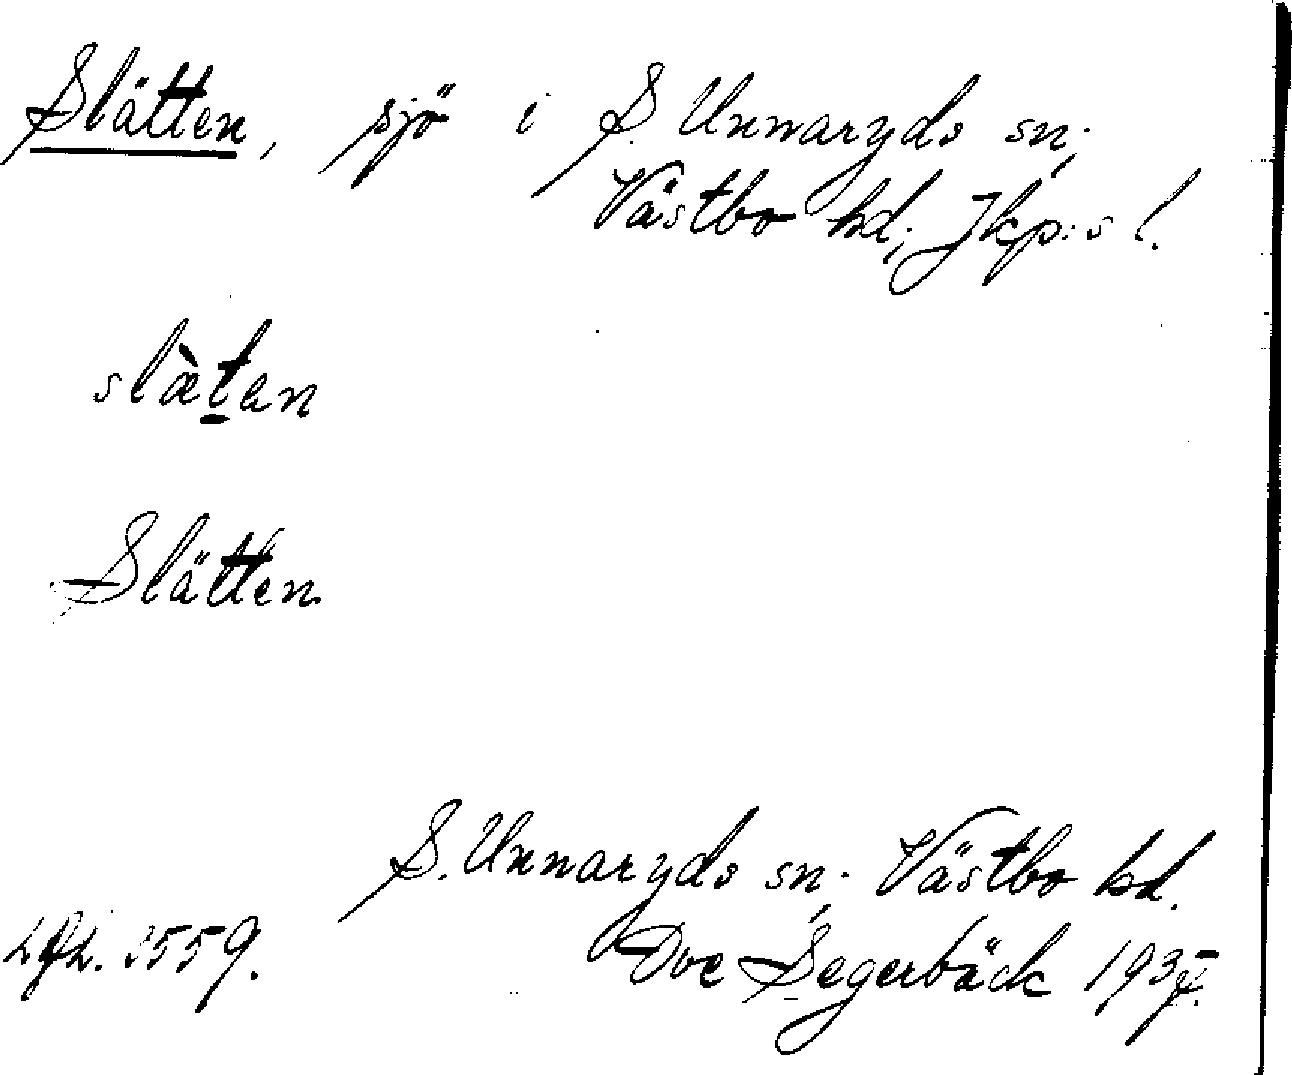 Slätten, sjö i S. Unnaryds sn;
Västbo hd; Jkp:s l.
slæ̀t̠an
Slätten
S. Unnaryds sn; Västbo hd.
2559. Segerbäck